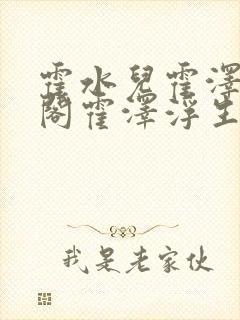 霍水兒霍澤
閣霍澤浮生
我是老家伙